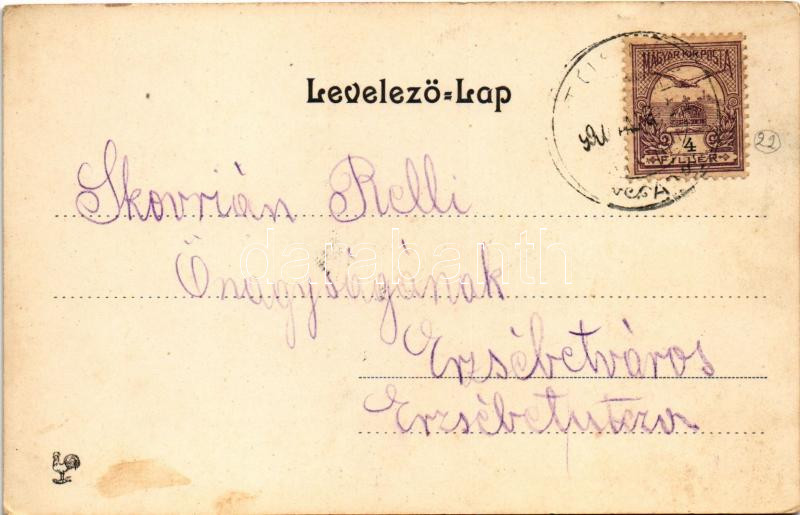 MAGYAR KIR. POSTA
Levelező=Lap
4
FILLÉR
22
Skovrián Relli
Őnagyságának
Erzsébetváros
Erzsébetutcza
databanth